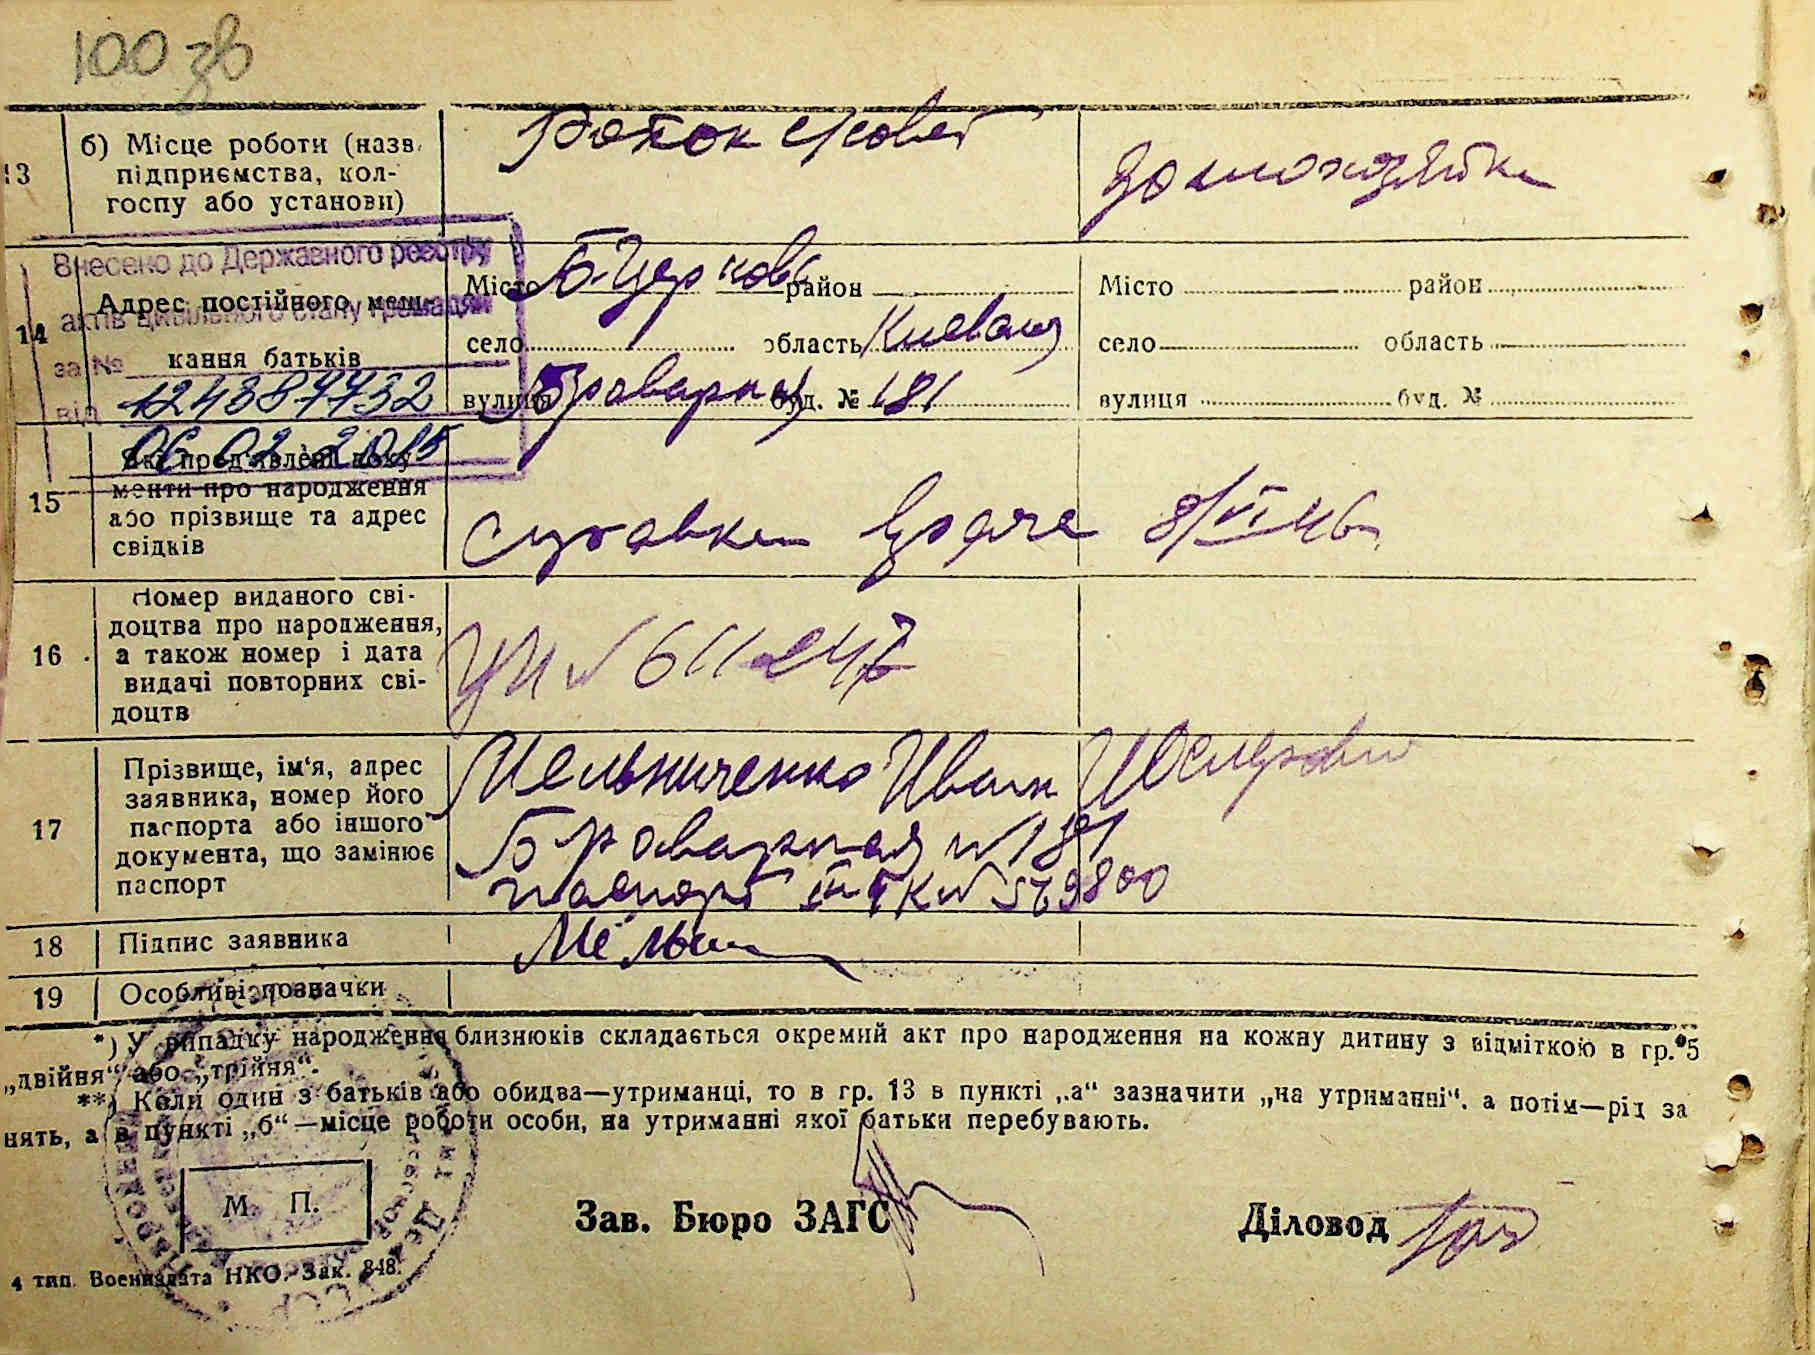 100 зв
13
б) Місце роботи (назв.
підприємства, кол-
госпу або установи)
домохозяйка
Внесено до Державного реєстру
актів цивільного стану громадян
за №
від
124387732
06 02 2015
14
Адрес постійного меш-
кання батьків
Місто Б-Церковь район
село область Киевская
вулиця Броварная буд. № 181
Місто район
село область
вулиця буд. №
15
Які пред'явлені доку-
менти про народження
або прізвище та адрес
свідків
справка врача 8/VI 46
16
Номер виданого сві-
доцтва про народження,
а також номер і дата
видачі повторних сві-
доцтв
№ 611247
17
Прізвище, ім'я, адрес
заявника, номер його
паспорта або іншого
документа, що замінює
паспорт
Мельниченко Иван
Броварная № 181
паспорт III ТК № 569800
18
Підпис заявника
Мельн
19
Особливі позначки
*) У випадку народження близнюків складається окремий акт про народження на кожну дитину з відміткою в гр. 5
„двійня“ або „трійня“.
**) Коли один з батьків або обидва—утриманці, то в гр. 13 в пункті „а“ зазначити „на утриманні“, а потім—рід за
нять, а в пункті „б“—місце роботи особи, на утриманні якої батьки перебувають.
М. П.
Зав. Бюро ЗАГС
Діловод
4 тип. Воениздата НКО. Зак. 848.